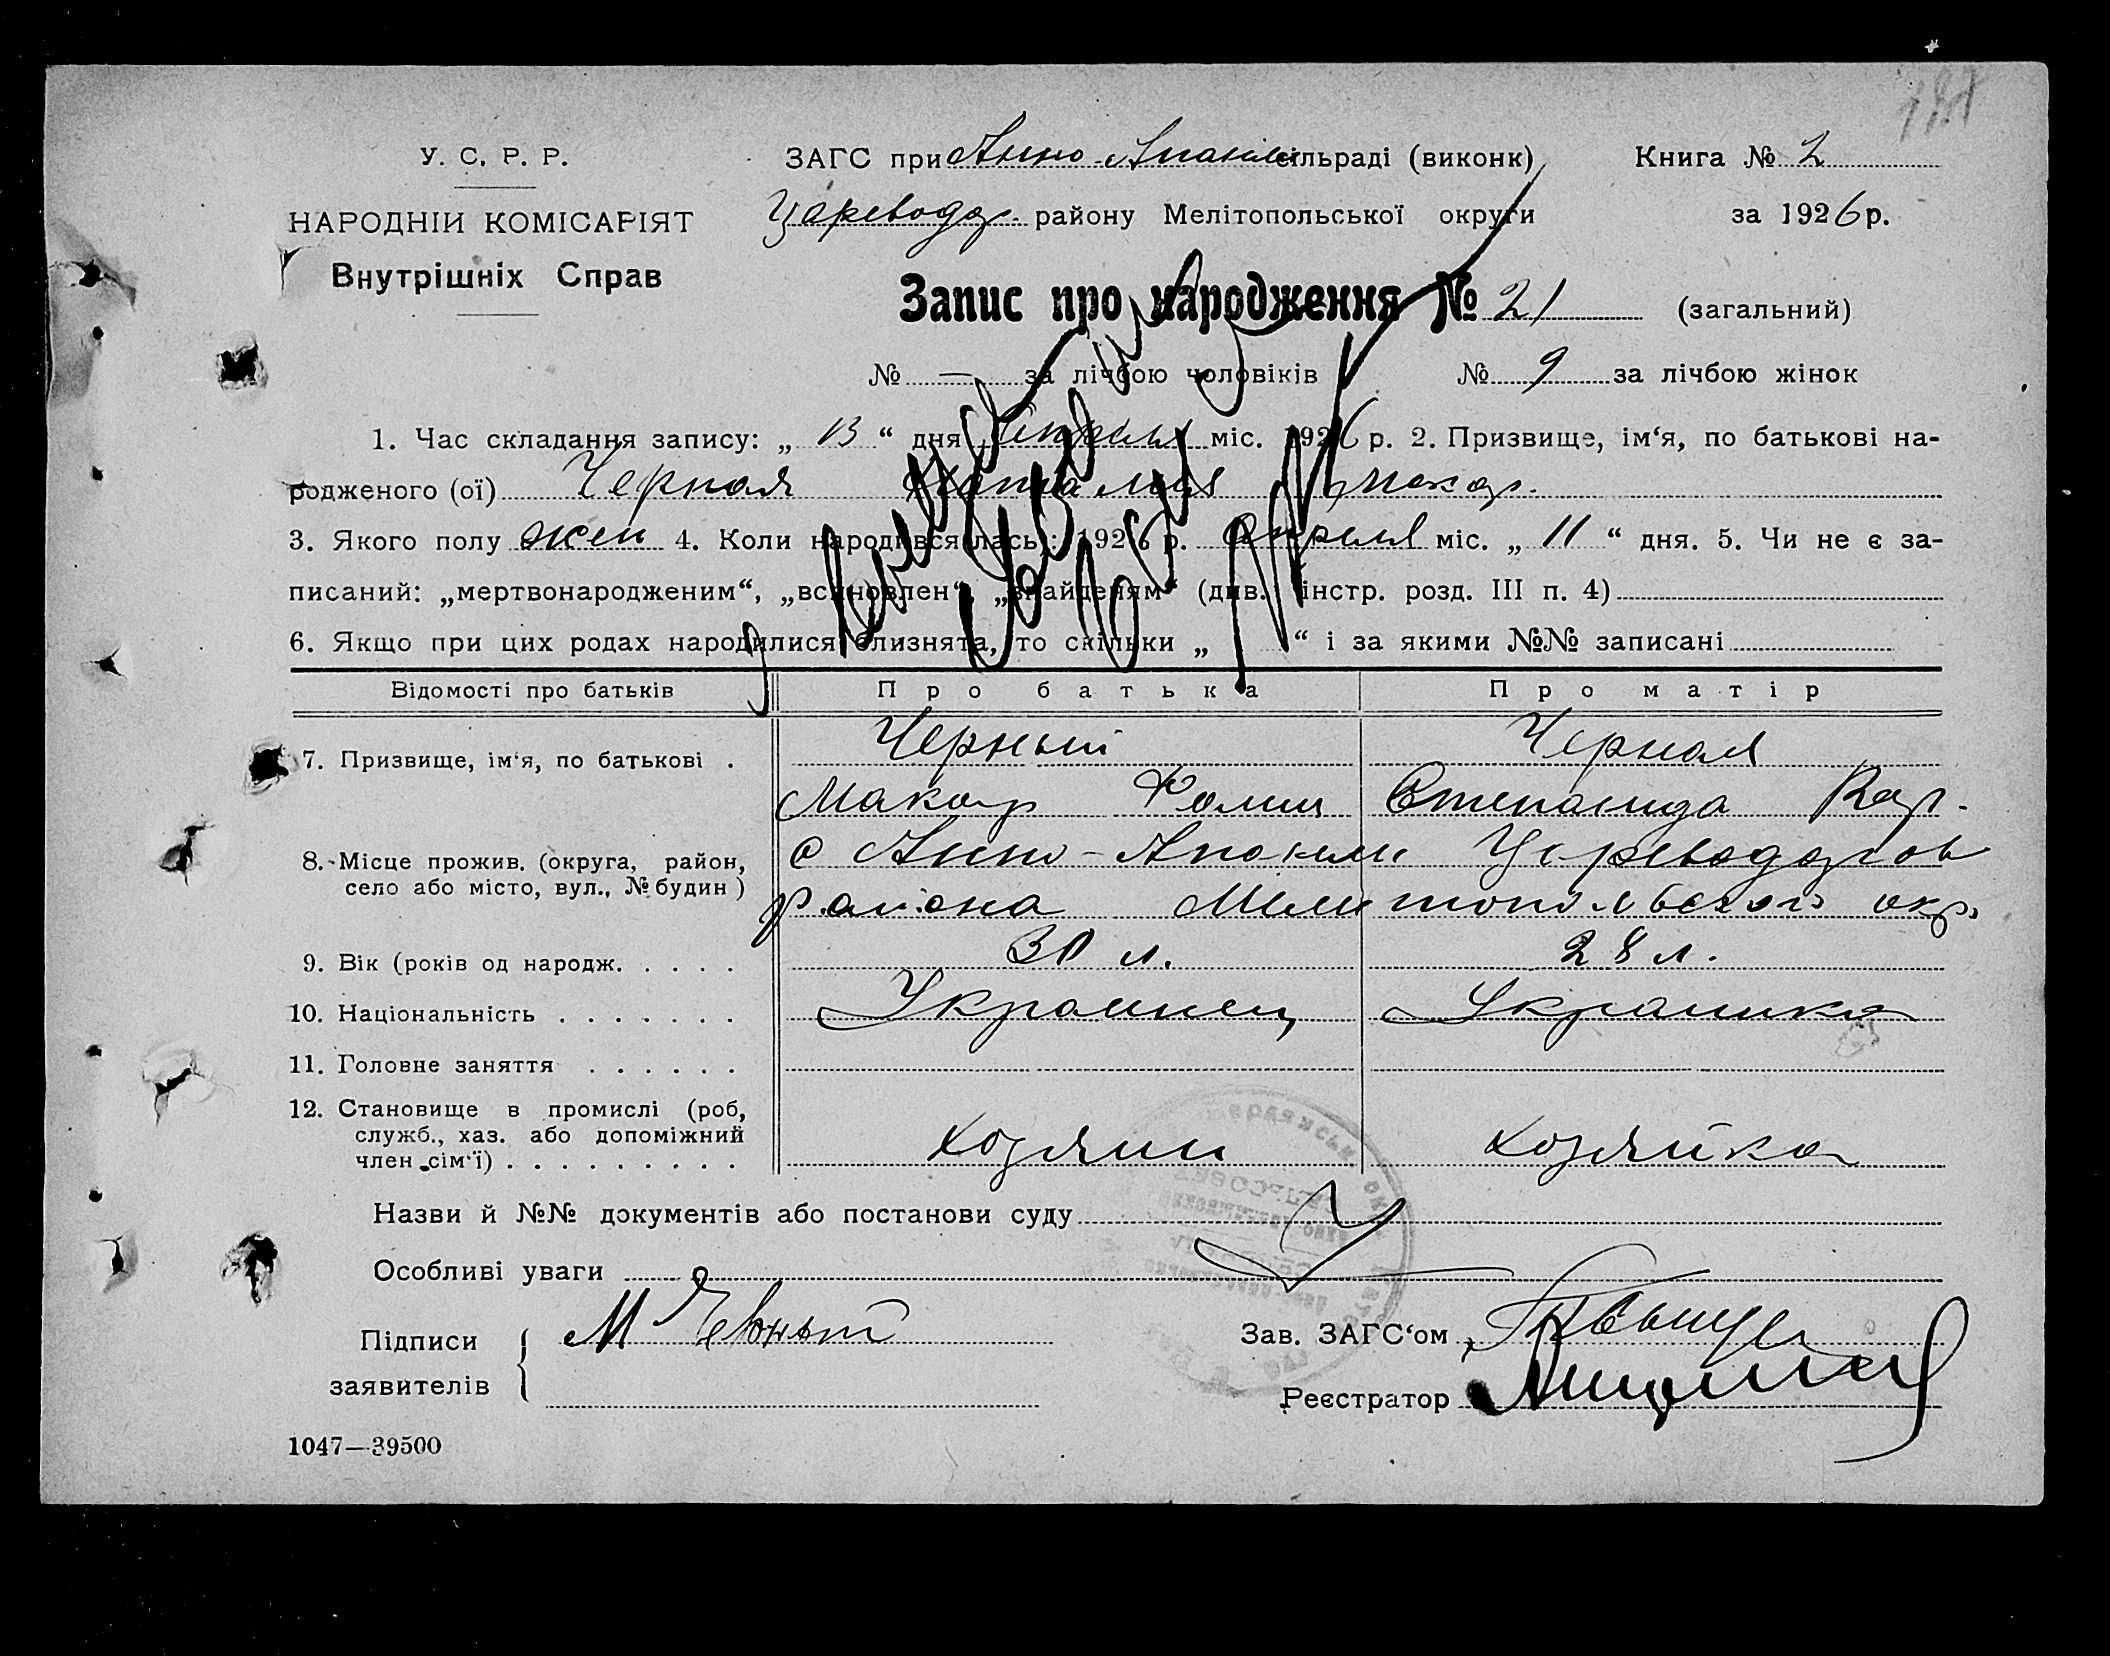 У. С. Р. Р.
НАРОДНІЙ КОМІСАРІЯТ
Внутрішніх Справ
ЗАГС при Анно-Апаким сільраді (виконк)
Книга № 2
Цареводар. району Мелітопольської округи
за 1926 р.
Запис про народження № 21 (загальний)
№ — за лічбою чоловіків № 9 за лічбою жінок
1. Час складання запису: „ 13 “ дня Апреля міс. 1926 р. 2. Призвище, ім‘я, по батькові на-
родженого (ої) Черная Наталия Макар.
3. Якого полу жен 4. Коли народився(лась): 1926 р. Апреля міс. „ 11 “ дня. 5. Чи не є за-
писаний: „мертвонародженим“, „встановлен“, „знайденям“ (див. інстр. розд. III п. 4)
6. Якщо при цих родах народилися близнята, то скільки „ “ і за якими №№ записані
Відомості про батьків Про батька Про матір
7. Призвище, ім‘я, по батькові . Черный Черная
Макар Фомич Степанида Кар.
8. Місце прожив. (округа, район, с Анно-Апоким Цареводаров
село або місто, вул., № будин ) района Мелитопольского окр.
9. Вік (років од народж. . . . . 30 л. 28 л.
10. Національність . . . . . . . Украинец Украинка
11. Головне заняття . . . . . .
12. Становище в промислі (роб,
служб., хаз. або допоміжний
член сім‘ї) . . . . . . . . . хозяин хозяйка
Назви й №№ документів або постанови суду
Особливі уваги
Підписи М Черный
заявителів
Зав. ЗАГС‘ом
Реєстратор
1047—39500